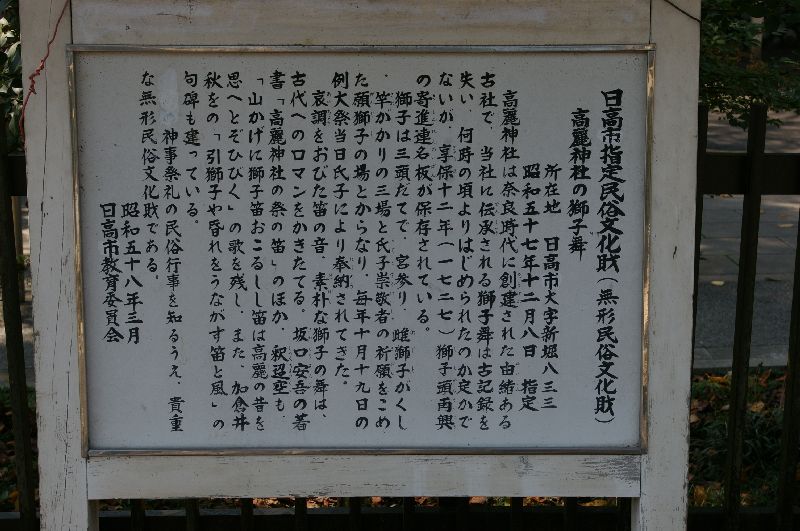 日高市指定民俗文化財(無形民俗文化財)
高麗神社の獅子舞
所在地 日高市大字新堀八三三
昭和五十七年十二月八日 指定
高麗神社は奈良時代に創建された由緒ある
古社で、当社に伝承される獅子舞は古記録を
失い、何時の頃よりはじめられたのか定かで
ないが、享保十二年(一七二七)獅子頭再興
の寄進連名板が保存されている。
獅子は三頭だてで、宮参り、雌獅子がくし
、竿かかりの三場と氏子崇敬者の祈願をこめ
た願獅子の場とからなり、毎年十月十九日の
例大祭当日氏子により奉納されてきた。
哀調をおびた笛の音、素朴な獅子の舞は、
古代へのロマンをかきたてる。坂口安吾の著
書「高麗神社の祭の笛」のほか、釈迢空も
「山かげに獅子笛おこるしし笛は高麗の昔を
思へとぞひびく」の歌を残し、また、加倉井
秋をの「引獅子や昏れをうながす笛と風」の
句碑も建っている。
神事祭礼の民俗行事を知るうえ、貴重
な無形民俗文化財である。
昭和五十八年三月
日高市教育委員会